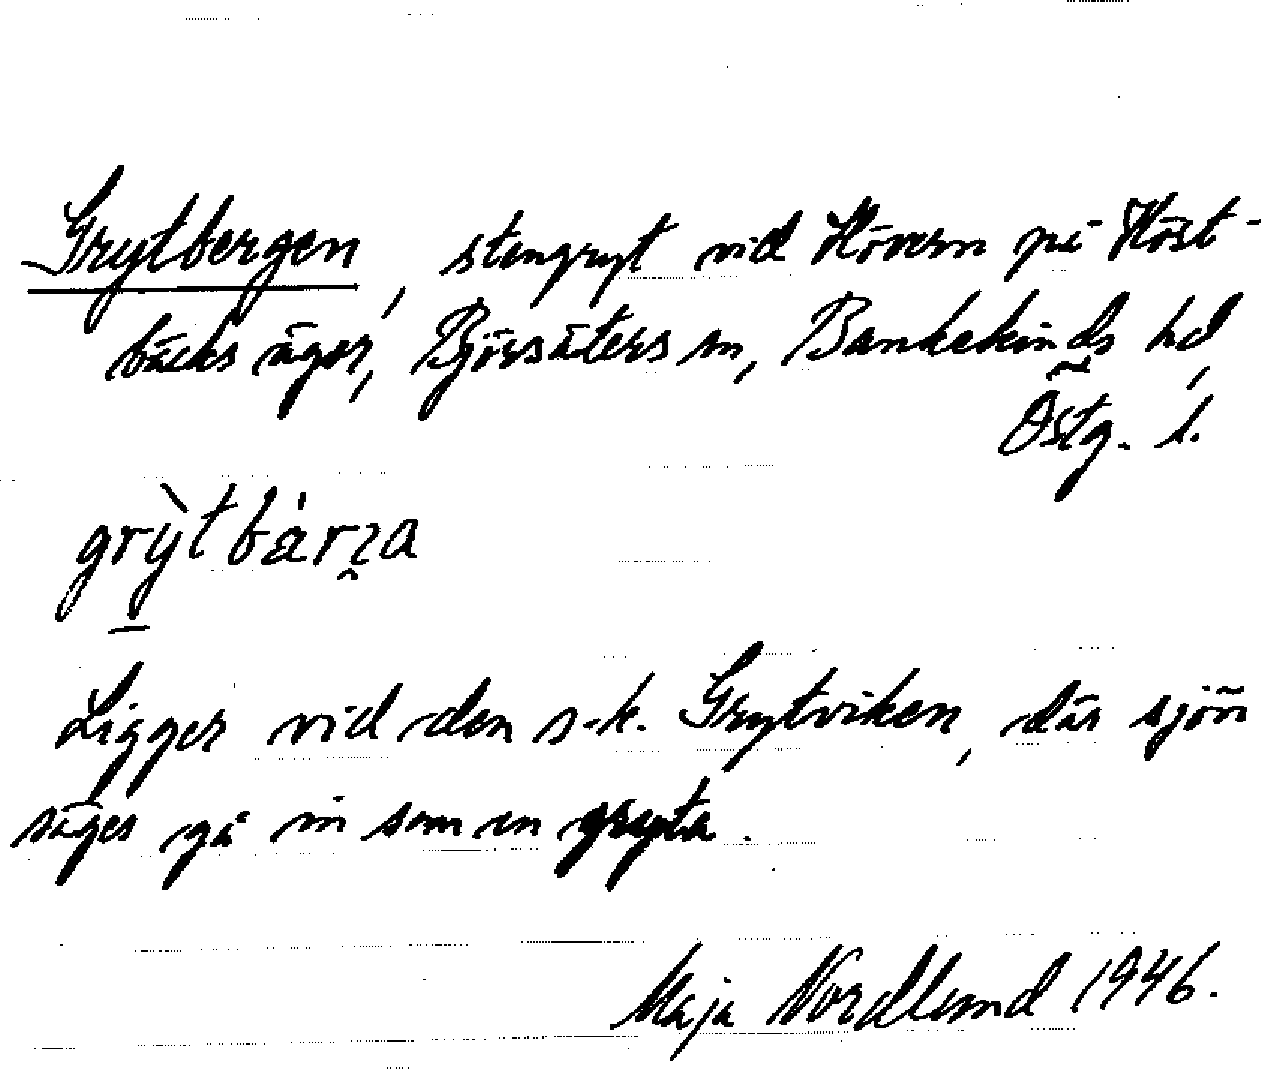 Grytbergen, stengryt vid Hövern på Höst-
bäcks ägor, Björsäters sn, Bankekinds hd,
Östg. l.
grỳtbárʒa
Ligger vid den s.k. Grytviken, där sjön
säges gå in som en gryta.
Maja Nordlund 1946.